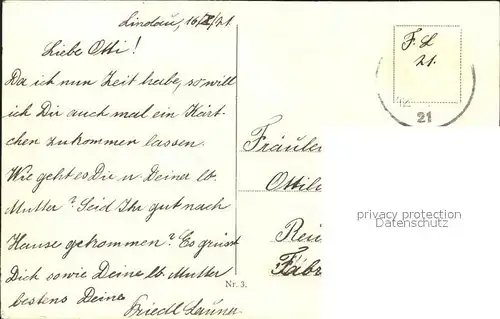 Lindau, 16/X/21
Liebe Otti!
Da ich nun Zeit habe, so will
ich Dir auch mal ein Kärt-
chen zukommen lassen.
Wie geht es Dir u. Deiner lb.
Mutter? Seid Ihr gut nach
Hause gekommen? Es grüsst
Dich sowie Deine lb. Mutter
bestens Deine
Friedl
F. L
21.
21
Fräulei
Ottili
Fabr
Nr. 3.
privacy protection
Datenschutz